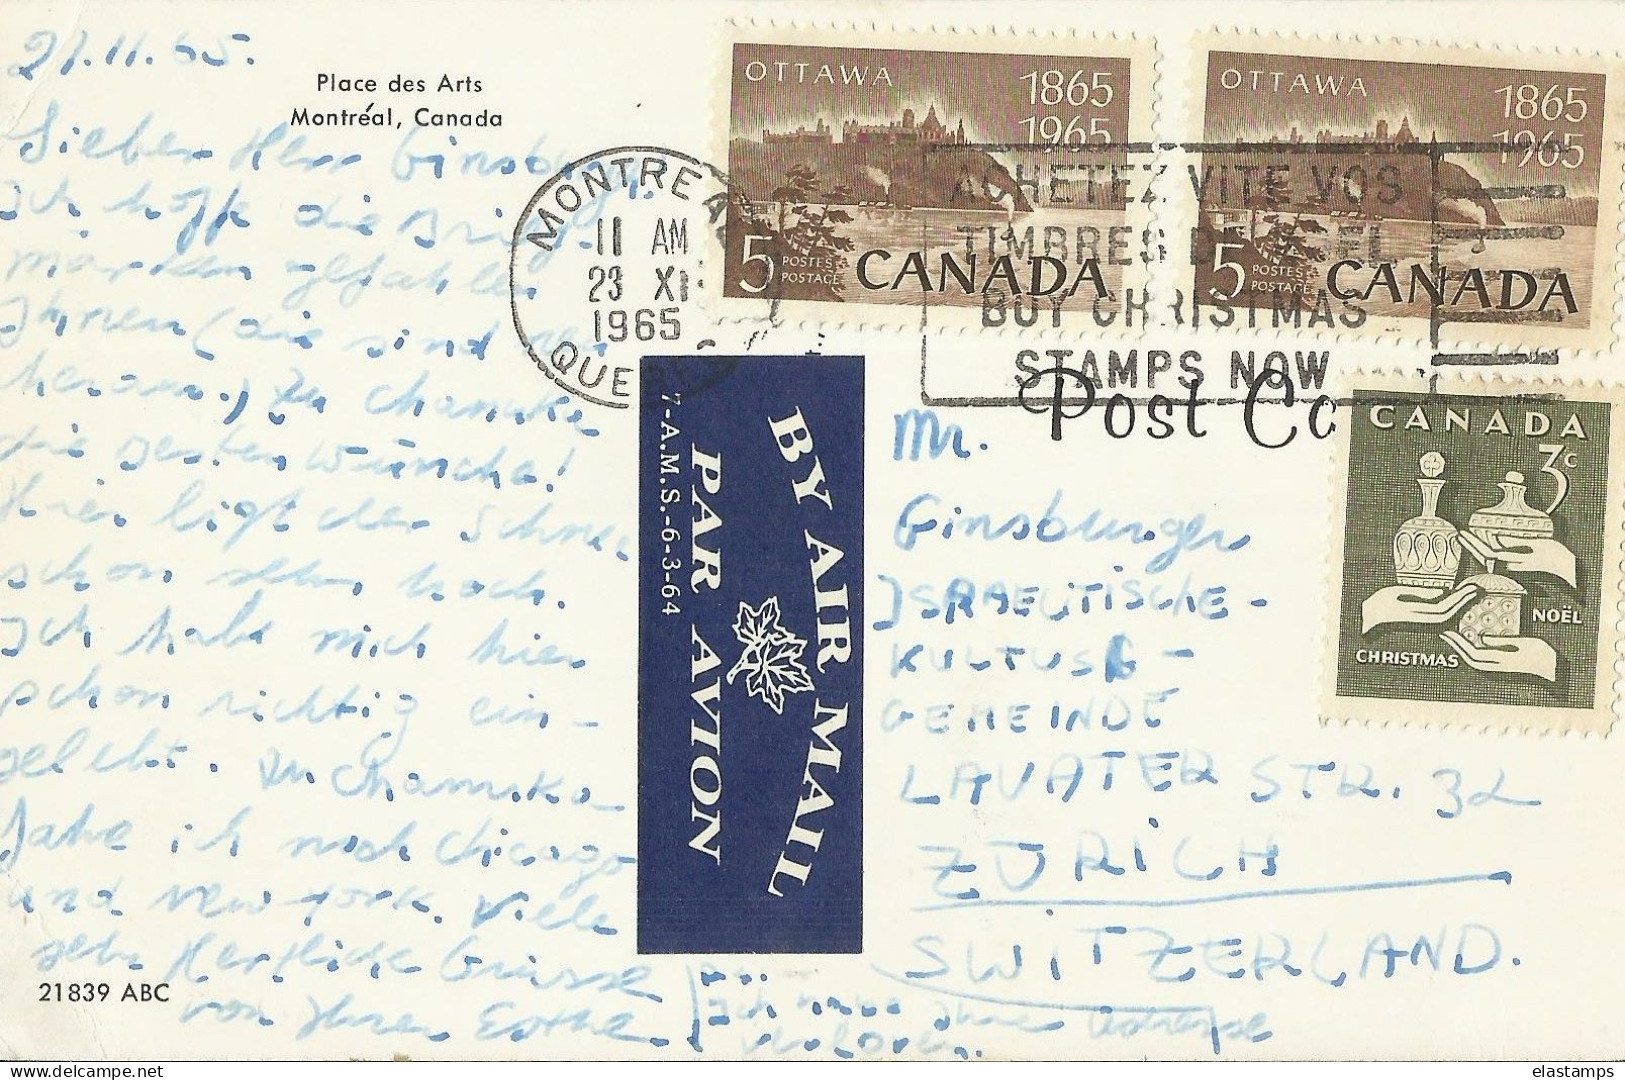 21.11.65.
Place des Arts
Montréal, Canada
Lieber Herr Ginsburg.
Ich hoffe die Brief-
marken gefallen
Ihnen (die sind
heraus.) Zu Chanuka
die besten Wünsche!
Hier ligt der Schnee
schon sehr hoch.
Ich habe mich hier
schon richtig ein-
gelebt. Zu Chanuka
fahre ich nach Chicago
und New York. Viele
sehr Hertzliche Grüsse
von Ihrer Esthe.
Ich habe Ihre Adresse
verloren.
21839 ABC
MONTREAL
11 AM
23 XI
1965
QUEBEC
ACHETEZ VITE VOS
TIMBRES DE NOEL
BUY CHRISTMAS
STAMPS NOW
OTTAWA
1865
1965
5
POSTES
POSTAGE
CANADA
OTTAWA
1865
1965
5
POSTES
POSTAGE
CANADA
Post Ca
CANADA
3c
NOËL
CHRISTMAS
BY AIR MAIL
PAR AVION
7-A.M.S.-6-3-64
Mr.
Ginsburger
ISRAELITISCHE-
KULTUSG-
GEMEINDE
LAVATER STR. 32
ZÜRICH
SWITZERLAND.
elastamps